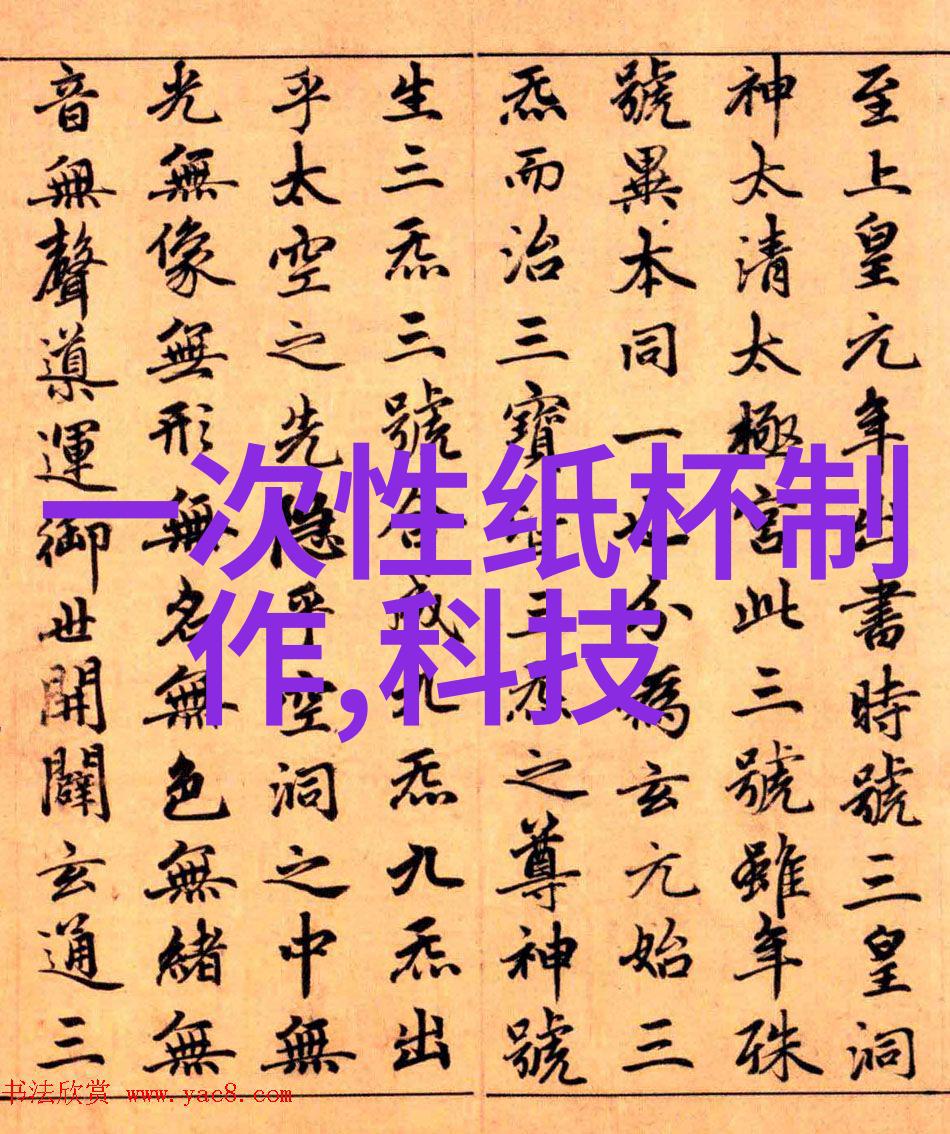 至上皇元年出書時號三皇洞
神太清太極宮此三號雖年殊
號異本同一也分為玄元始三
炁而治三寶皆三炁之尊神號
生三炁三號合成九炁九炁出
乎太空之先隱乎空洞之中無
光無像無形無名無色無緒無
音無聲導運御世開闢玄通三
一次性纸杯制
作,科技
书法欣赏 www.yac8.com